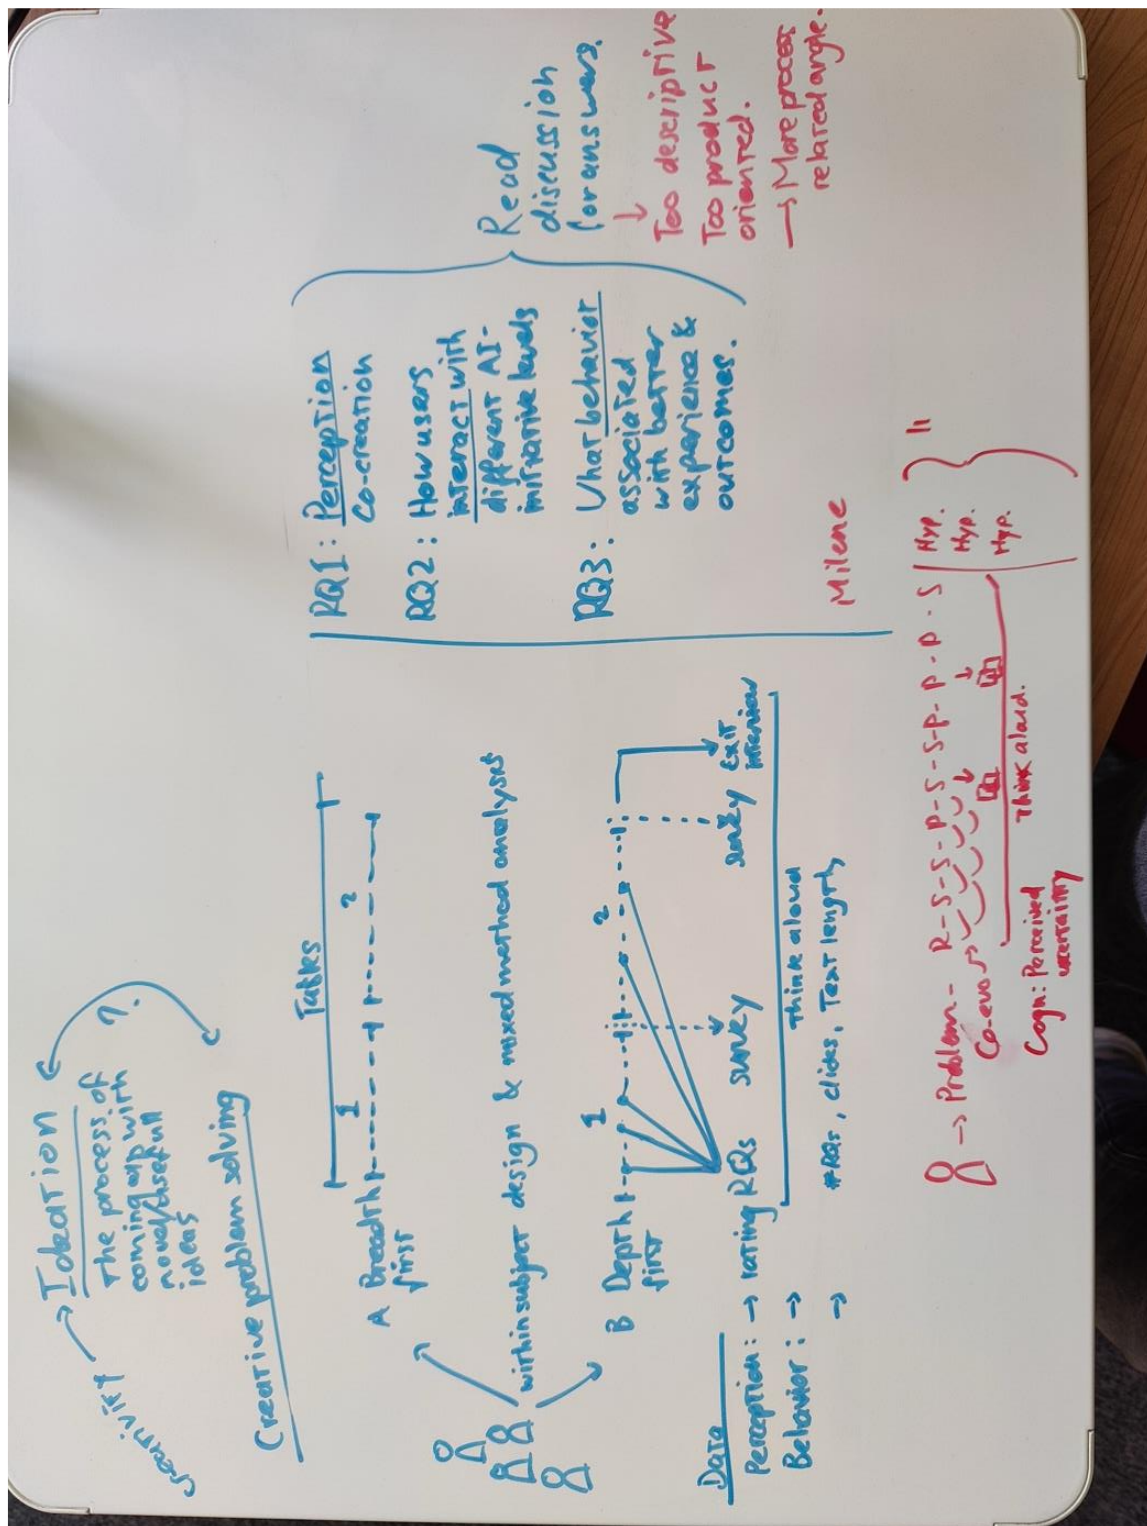 creativity → Ideation
The process of
coming up with
novel/usefull
ideas
?
Creative problem solving
Tasks
1
2
A Breadth
first
within subject design & mixed method analysis
1
2
B Depth
first
Data
Perception: → rating RQs survey survey exit
interview
Behavior: → Think aloud
→ #RQs, clicks, Text length
RQ1: Perception
Co-creation
RQ2: How users
interact with
different AI-
initiative levels
RQ3: What behavior
associated
with better
experience &
outcomes.
Read
discussion
for answers.
↓
Too descriptive
Too product
oriented.
→ More process
related angle.
Milene
→ Problem - R-S-S-P-S-S-P-P-P-S
Hyp.
Hyp.
Hyp.
Co-evo →
Think aloud.
Cogn: Perceived
uncertainty